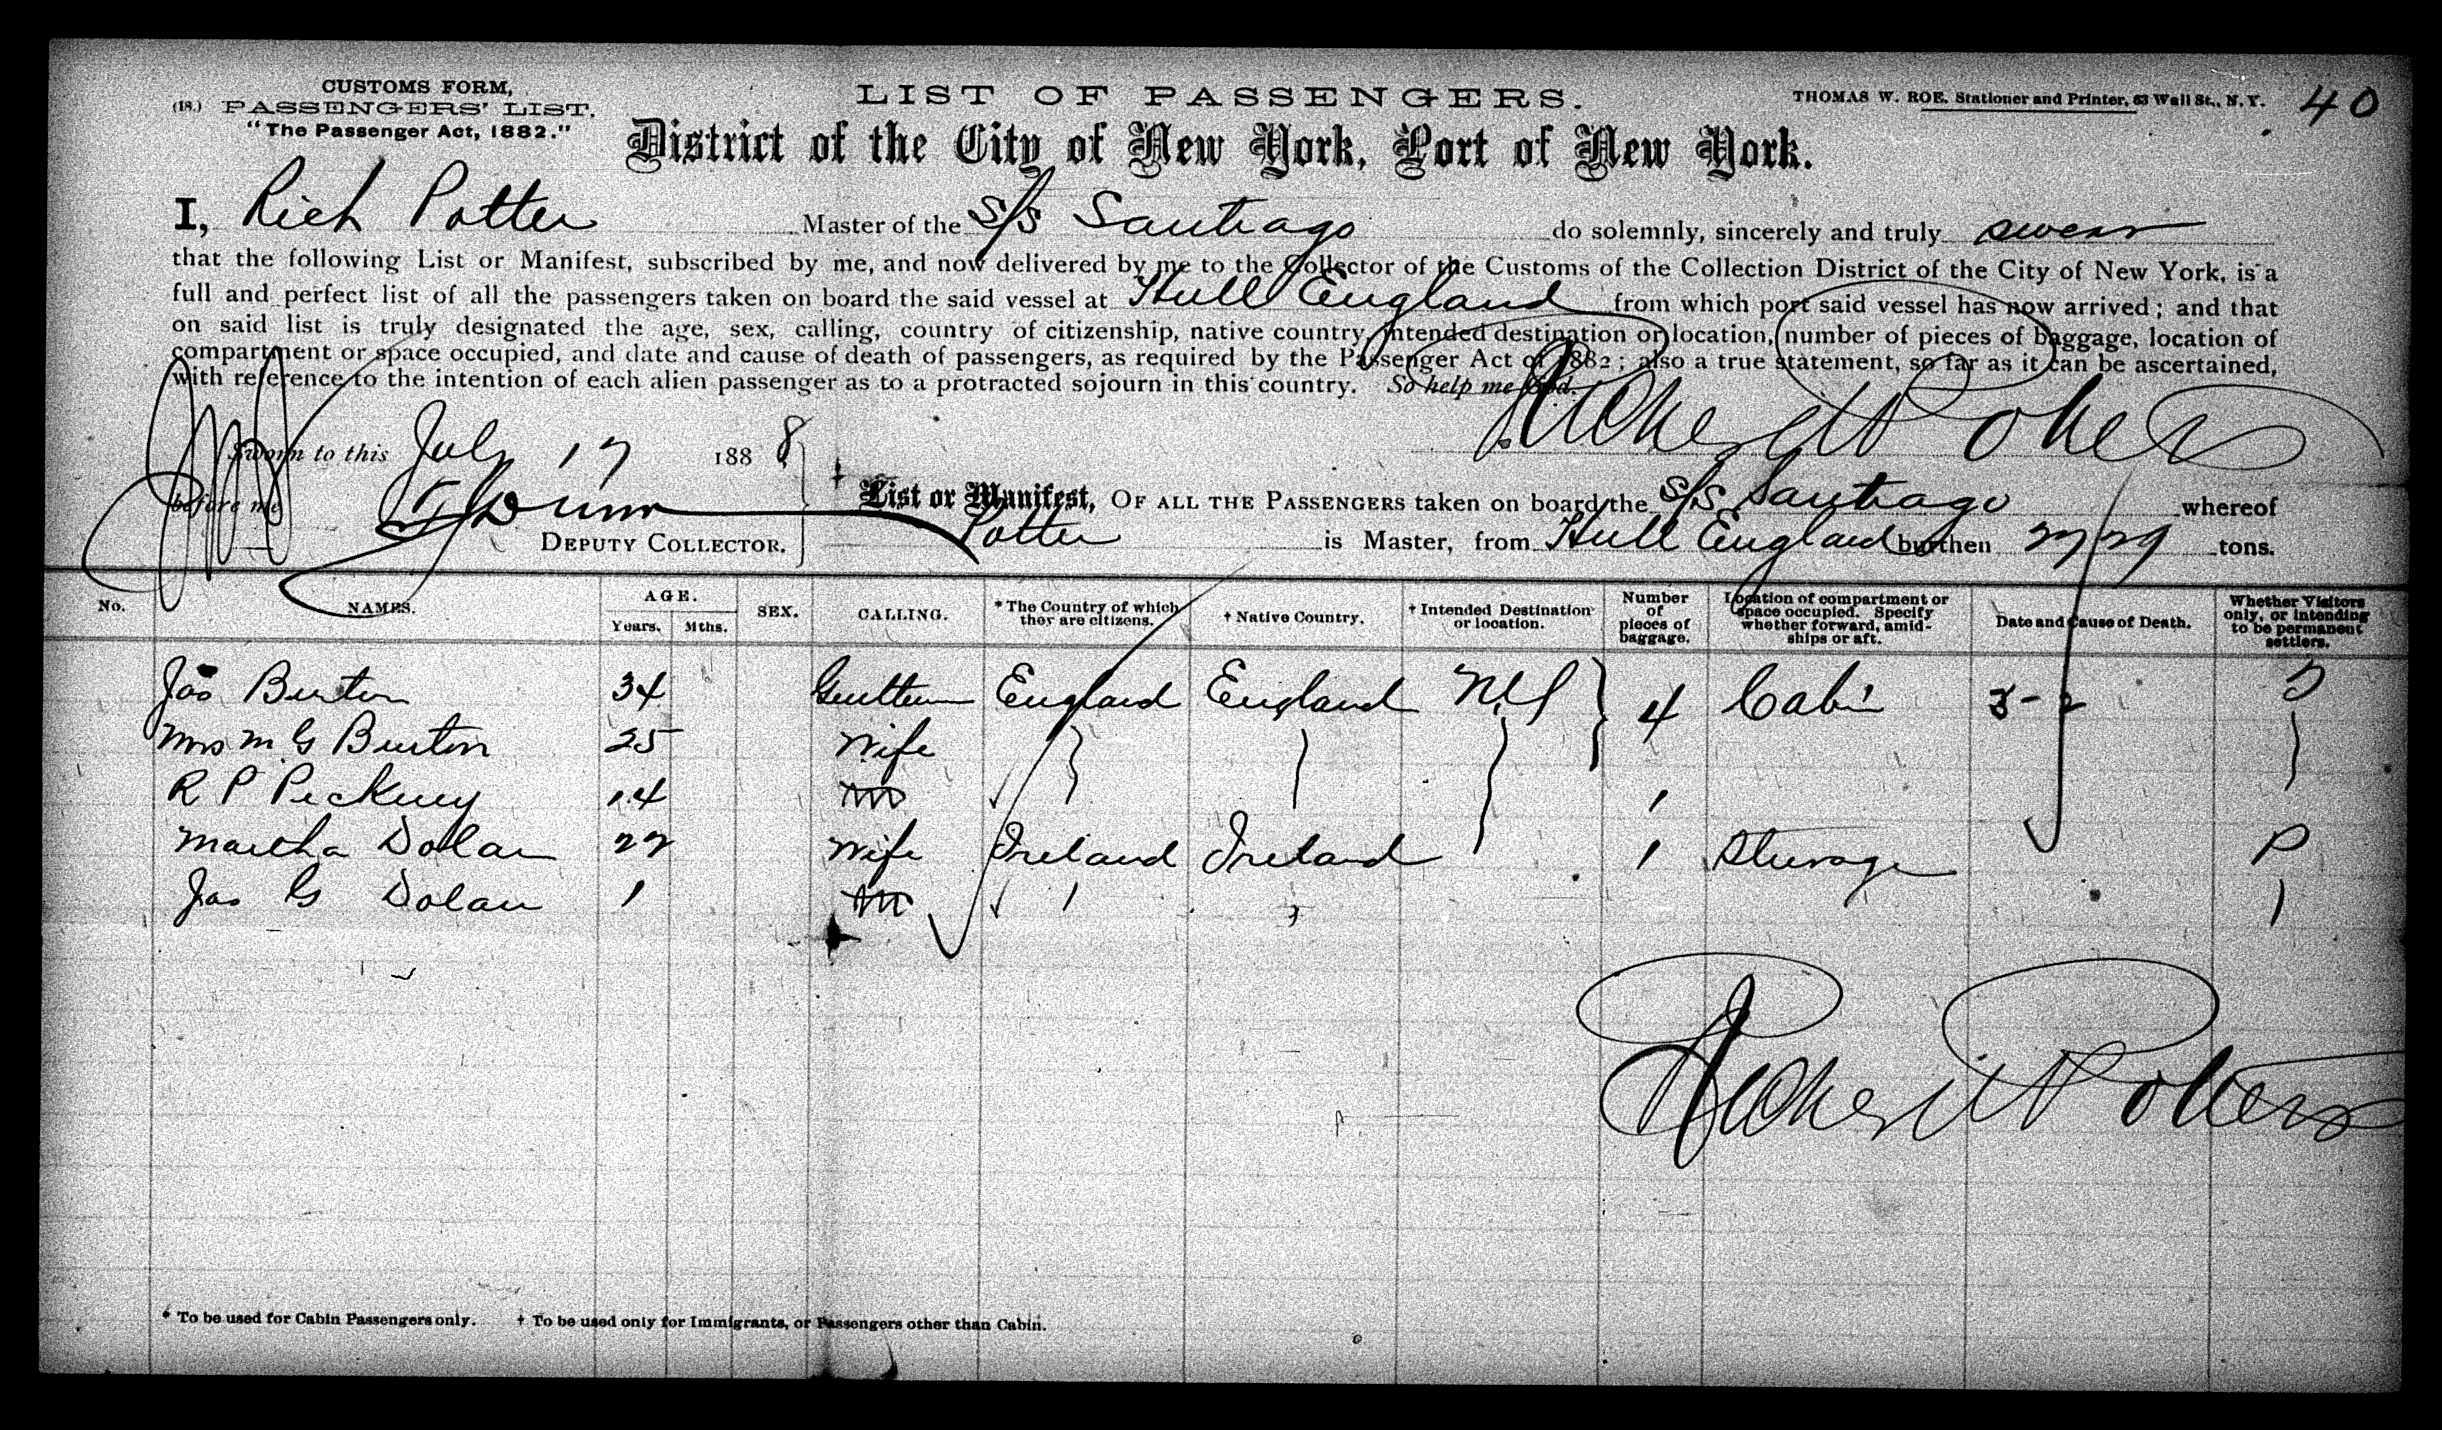 CUSTOMS FORM,
(18.) PASSENGERS' LIST.
"The Passenger Act, 1882."
LIST OF PASSENGERS.
THOMAS W. ROE, Stationer and Printer, 63 Wall St., N. Y.
40
District of the City of New York, Port of New York.
I, Rich Potter Master of the S/S Santiago do solemnly, sincerely and truly swear
that the following List or Manifest, subscribed by me, and now delivered by me to the Collector of the Customs of the Collection District of the City of New York, is a
full and perfect list of all the passengers taken on board the said vessel at Hull England from which port said vessel has now arrived; and that
on said list is truly designated the age, sex, calling, country of citizenship, native country, intended destination or location, number of pieces of baggage, location of
compartment or space occupied, and date and cause of death of passengers, as required by the Passenger Act of 1882; also a true statement, so far as it can be ascertained,
with reference to the intention of each alien passenger as to a protracted sojourn in this country. So help me God.
Sworn to this July 17 1888
before me
DEPUTY COLLECTOR.
List or Manifest, OF ALL THE PASSENGERS taken on board the S/S Santiago whereof
Potter is Master, from Hull England burthen tons.
No. NAMES. AGE. Years. Mths. SEX. CALLING. * The Country of which they are citizens. † Native Country. † Intended Destination or location. Number of pieces of baggage. Location of compartment or space occupied. Specify whether forward, amidships or aft. Date and Cause of Death. Whether Visitors only, or intending to be permanent settlers.
Jas Burton 34 England England N.Y 4 Cabin 3-2
Mrs M G Burton 25 Wife
R P 14 1
Martha Dolan 22 Wife Ireland Ireland 1 Steerage P
Jas G Dolan 1
* To be used for Cabin Passengers only. † To be used only for Immigrants, or Passengers other than Cabin.